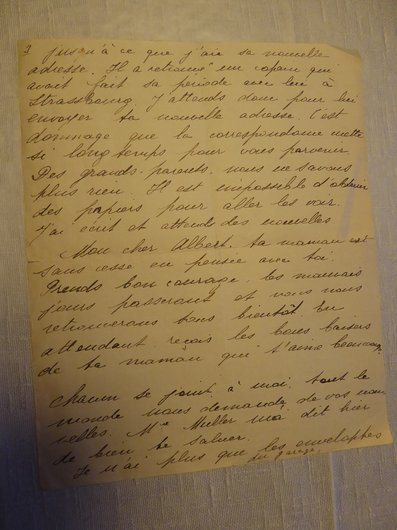 3 jusqu'à ce que j'aie sa nouvelle
adresse. Il a retrouvé un copain qui
avait fait sa période avec lui à
Strassbourg. J'attends donc pour lui
envoyer ta nouvelle adresse. C'est
dommage que la correspondance mette
si longtemps pour vous parvenir.
Des grands-parents, nous ne savons
plus rien. Il est impossible d'obtenir
des papiers pour aller les voir.
J'ai écrit et attends des nouvelles.
Mon cher Albert, ta maman est
sans cesse en pensée avec toi.
Prends bon courage, les mauvais
jours passeront et nous nous
retrouverons tous bientôt. En
attendant, reçois les bons baisers
de ta maman qui t'aime beaucoup.
Chacun se joint à moi, tout le
monde nous demande de vos nou
velles. Me Muller m'a dit hier
de bien te saluer.
Je n'ai plus que les enveloppes
du garage.